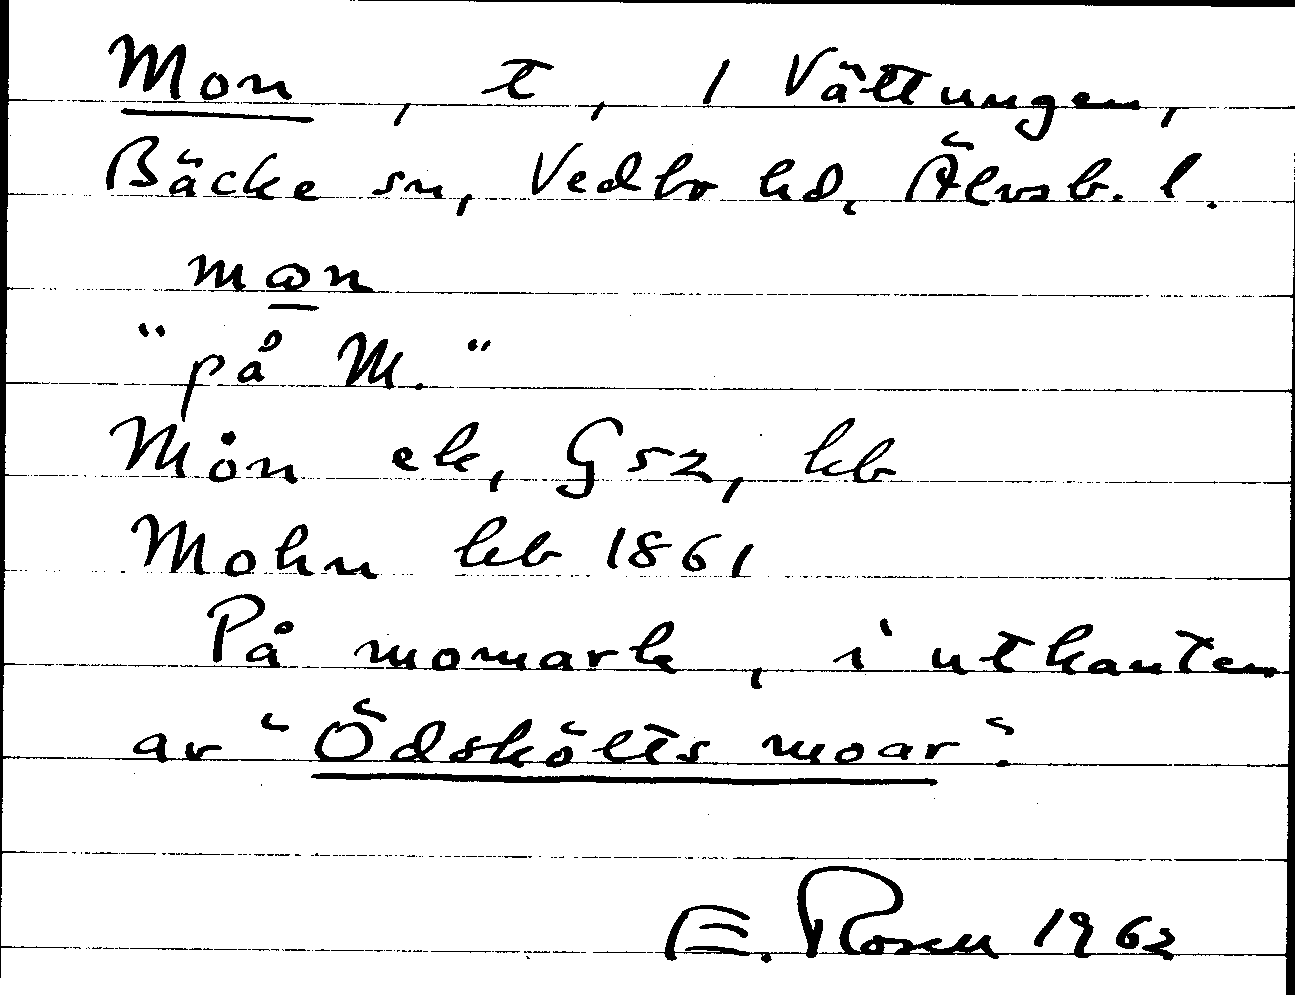 Mon, t, 1 Vättungen,
Bäcke sn, Vedbo hd, Älvsb. l.
man
"på M."
Mon ek, Gsz, kb
Mohn kb 1861
På momark, i utkanten
av "Ödskölts moar".
E. Rosen 1962